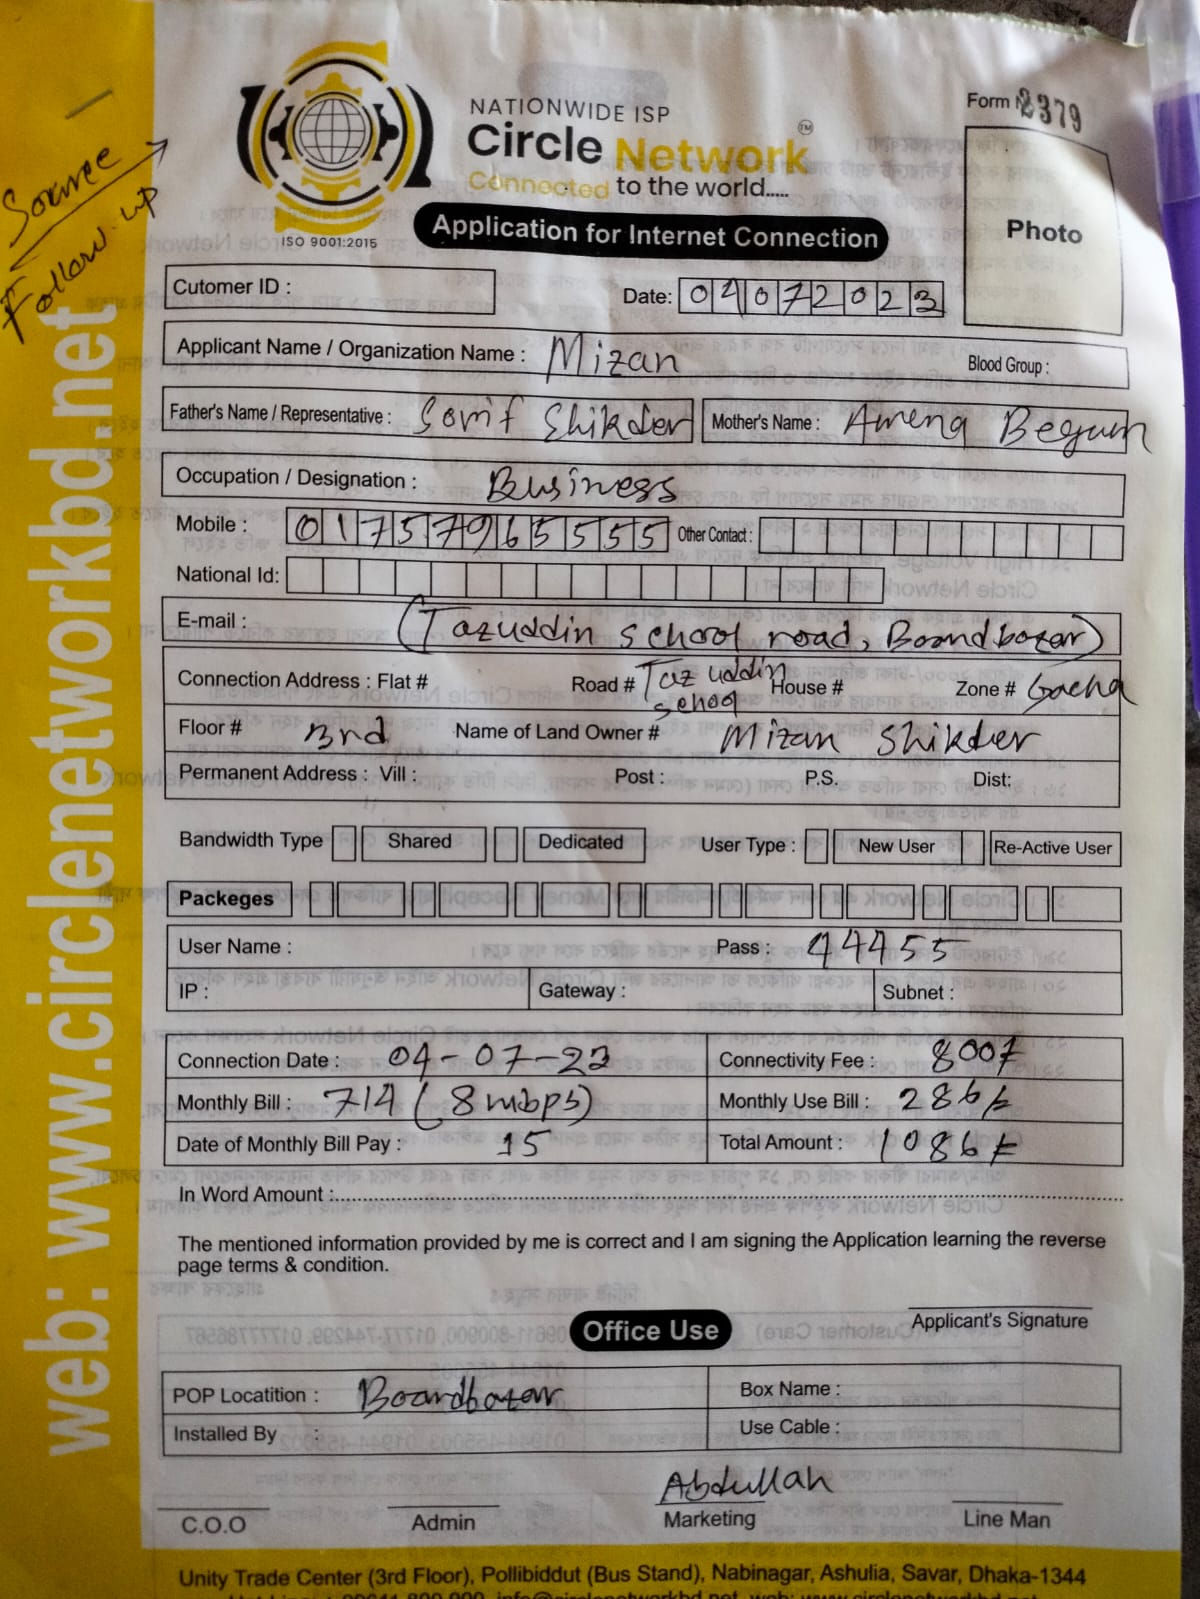 NATIONWIDE ISP
Circle Network TM
Connected to the world.....
ISO 9001:2015
Application for Internet Connection
Form 2379
Photo
Source
Follow up
web: www.circlenetworkbd.net
Cutomer ID :
Date: 04072023
Applicant Name / Organization Name : Mizan Blood Group :
Father's Name / Representative : Sorif Shikder Mother's Name : Amena Begum
Occupation / Designation : Business
Mobile : 01757965555 Other Contact :
National Id:
E-mail : (Tazuddin school road, Boardbazar)
Connection Address : Flat # Road # Tazuddin school House # Zone # Gacha
Floor # 3rd Name of Land Owner # Mizan Shikder
Permanent Address : Vill : Post : P.S. Dist:
Bandwidth Type Shared Dedicated User Type : New User Re-Active User
Packeges
User Name : Pass : 44455
IP : Gateway : Subnet :
Connection Date : 04-07-23 Connectivity Fee : 800/
Monthly Bill : 714 (8 mbps) Monthly Use Bill : 286/
Date of Monthly Bill Pay : 15 Total Amount : 1086/
In Word Amount :
The mentioned information provided by me is correct and I am signing the Application learning the reverse
page terms & condition.
Applicant's Signature
Office Use
POP Locatition : Boardbazar Box Name :
Installed By : Use Cable :
Abdullah
C.O.O Admin Marketing Line Man
Unity Trade Center (3rd Floor), Pollibiddut (Bus Stand), Nabinagar, Ashulia, Savar, Dhaka-1344